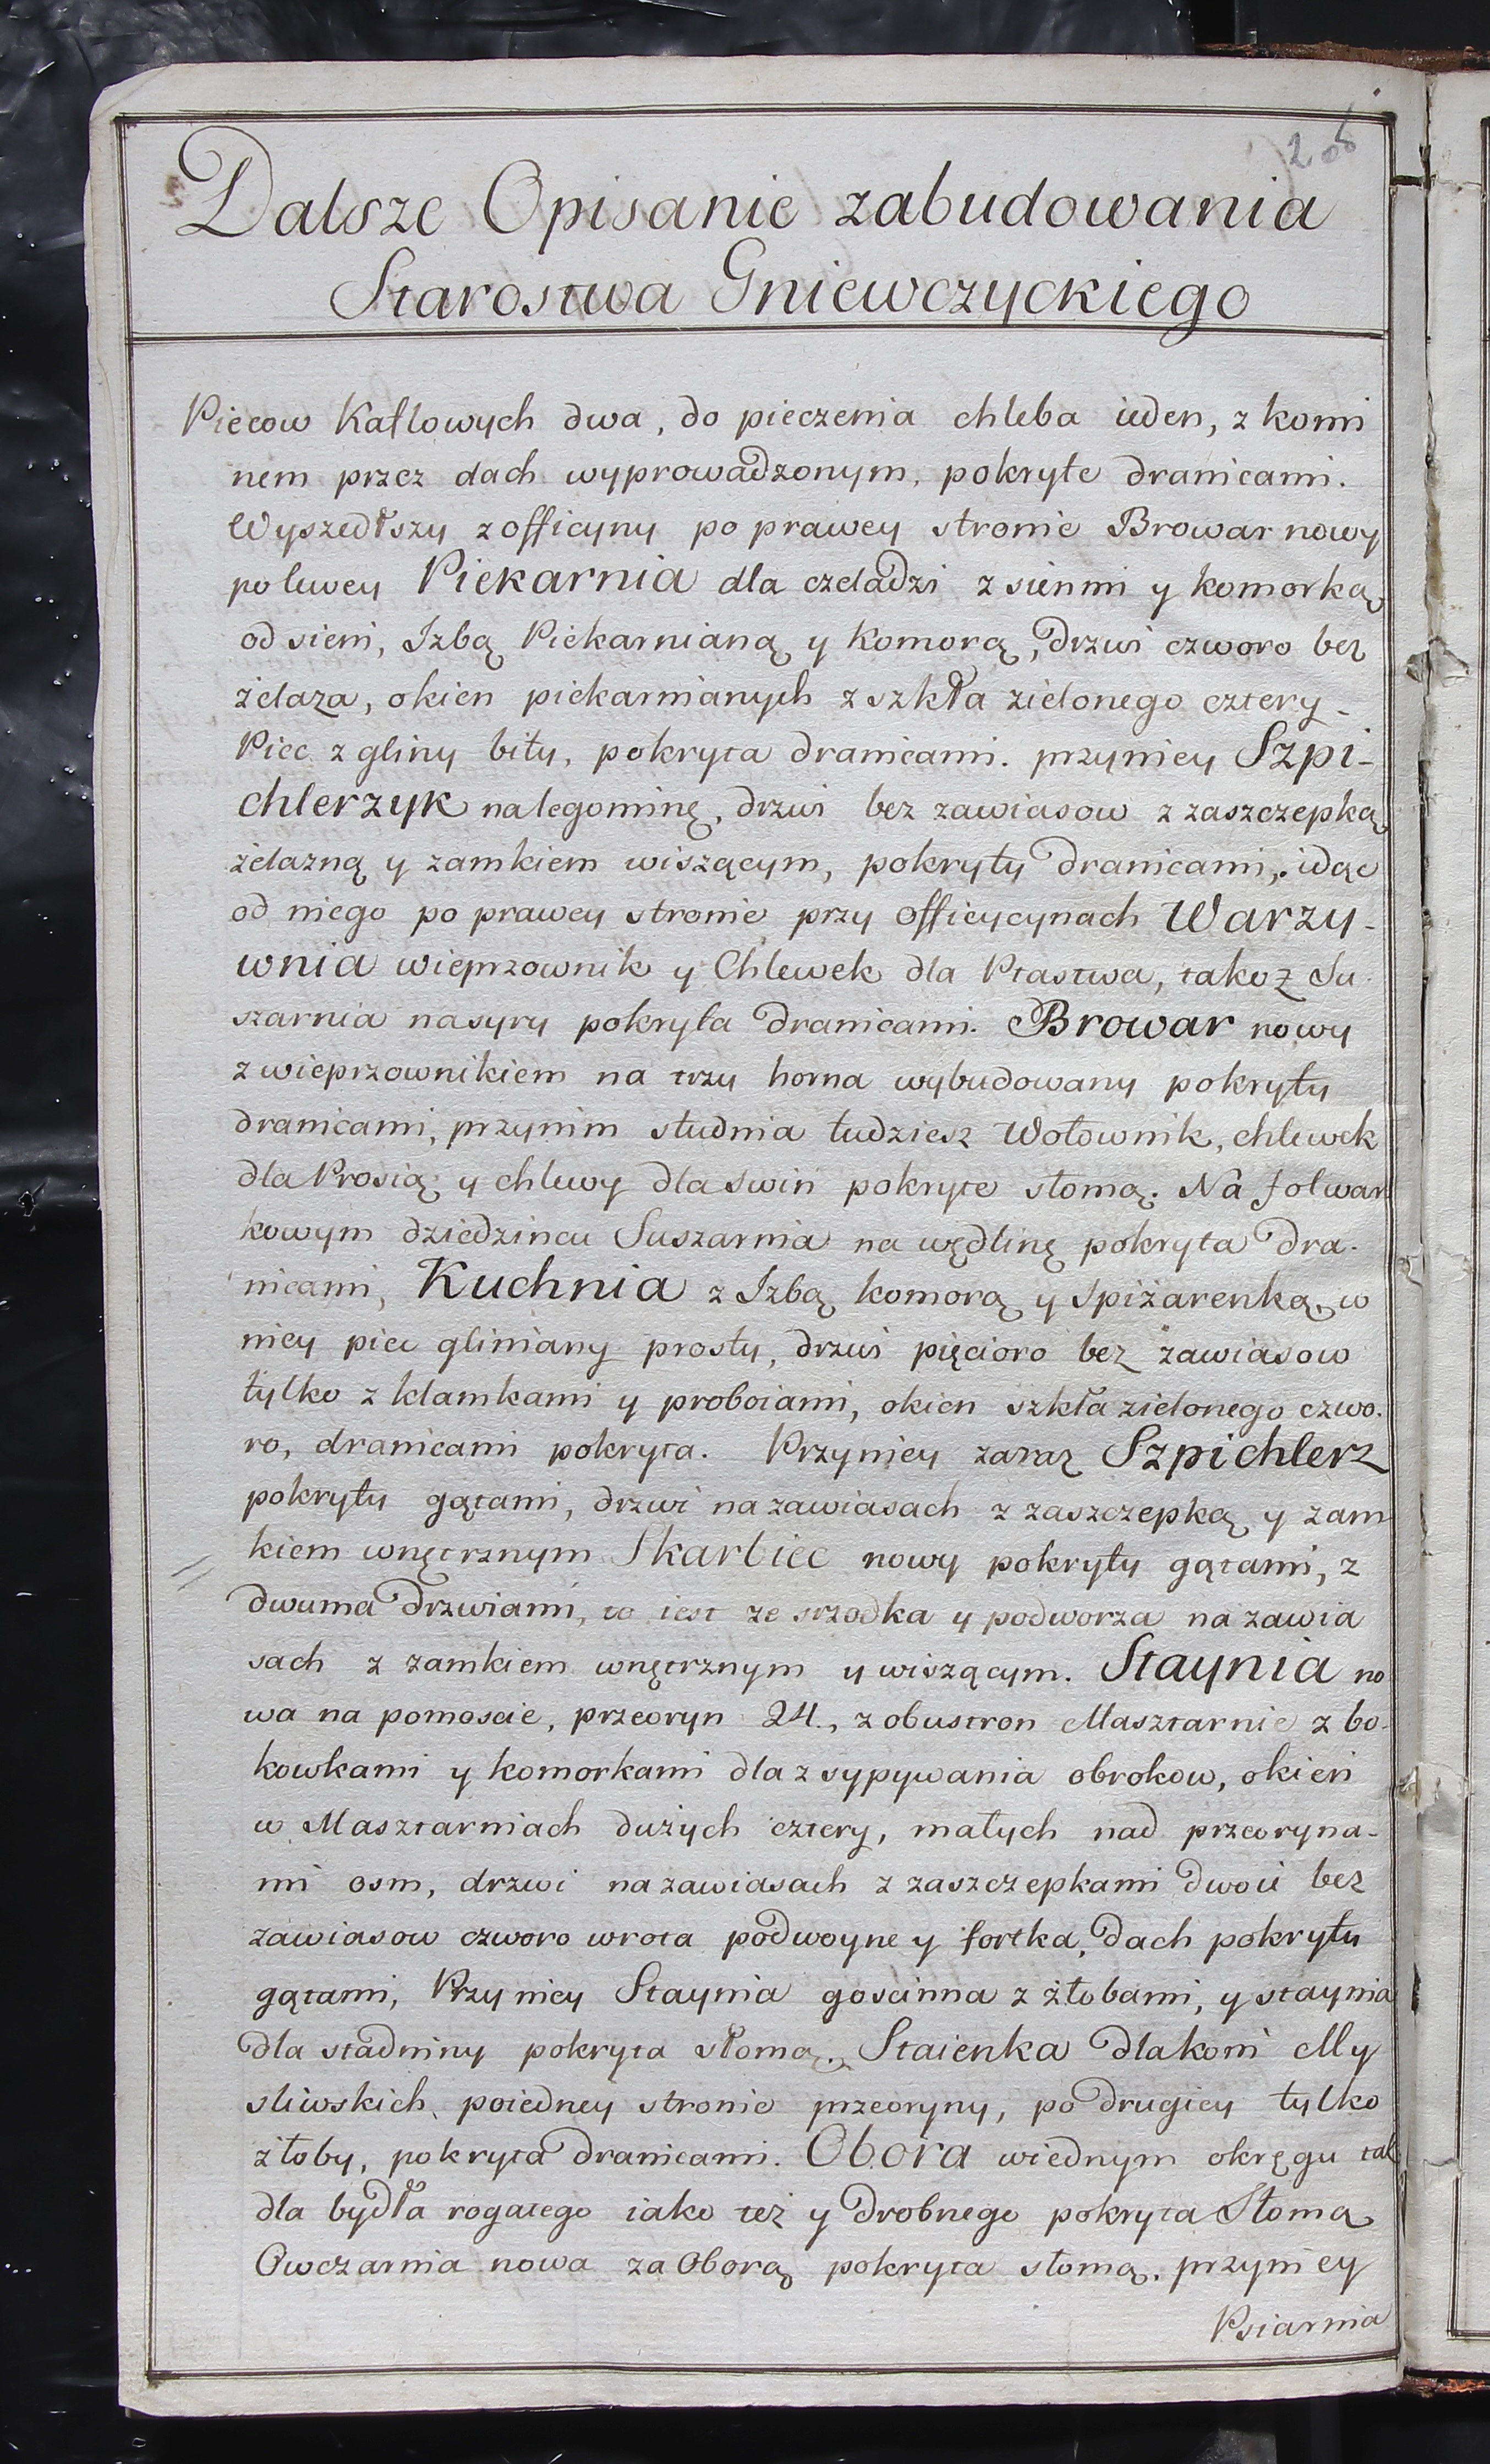 206
Dalsze Opisanie zabudowania
Starostwa Gniewczyckiego
Piecow Kaflowych dwa, do pieczenia chleba ieden, z komi
nem przez dach wyprowadzonym, pokryte dranicami.
Wyszedłszy z officyny po prawey stronie Browar nowy
po lewey Piekarnia dla czeladzi z sienmi y komorką
od sieni, Izbą Piekarnianą y Komorą, drzwi czworo bez
żelaza, okien piekarnianych z szkła zielonego cztery
Piec z gliny bity, pokryta dranicami. przyniey Szpi-
chlerzyk na legominę, drzwi bez zawiasow z zaszczepką
żelazną y zamkiem wiszącym, pokryty dranicami, idąc
od niego po prawey stronie przy officycynach Warzy-
wnia wieprzownik y Chlewek dla Ptastwa, takoż Su-
szarnia na syry pokryta dranicami. Browar nowy
z wieprzownikiem na trzy horna wybudowany pokryty
dranicami, przynim studnia tudziesz Wołownik, chlewek
dla Prosią y chlewy dla swiń pokryte słomą. Na folwar
kowym dziedzincu Suszarnia na wędlinę pokryta dra-
nicami, Kuchnia z Izbą komorą y spiżarenką, w
niey piec gliniany prosty, drzwi pięcioro bez zawiasow
tylko z klamkami y proboiami, okien szkła zielonego czwo-
ro, dranicami pokryta. Przyniey zaraz Szpichlerz
pokryty gątami, drzwi na zawiasach z zaszczepką y zam
kiem wnętrznym Skarbiec nowy pokryty gątami, z
dwuma drzwiami, to iest ze srzodka y podworza na zawia
sach z zamkiem wnętrznym y wiszącym. Staynia no
wa na pomoscie, przeoryn 24., z obustron Masztarnie z bo-
kowkami y komorkami dla zsypywania obrokow, okien
w Masztarniach dużych cztery, małych nad przeoryna-
mi osm, drzwi na zawiasach z zaszczepkami dwoie bez
zawiasow czworo wrota podwoyne y fortka, dach pokryty
gątami, Przyniey Staynia goscinna z żłobami, y staynia
dla stadniny pokryta słomą. Staienka dla koni My
sliwskich, poiedney stronie przeoryny, po drugiey tylko
złoby, pokryta dranicami. Obora wiednym okręgu tak
dla bydła rogatego iako też y drobnego pokryta Słomą
Owczarnia nowa za Oborą pokryta słomą, przyniey
Psiarnia